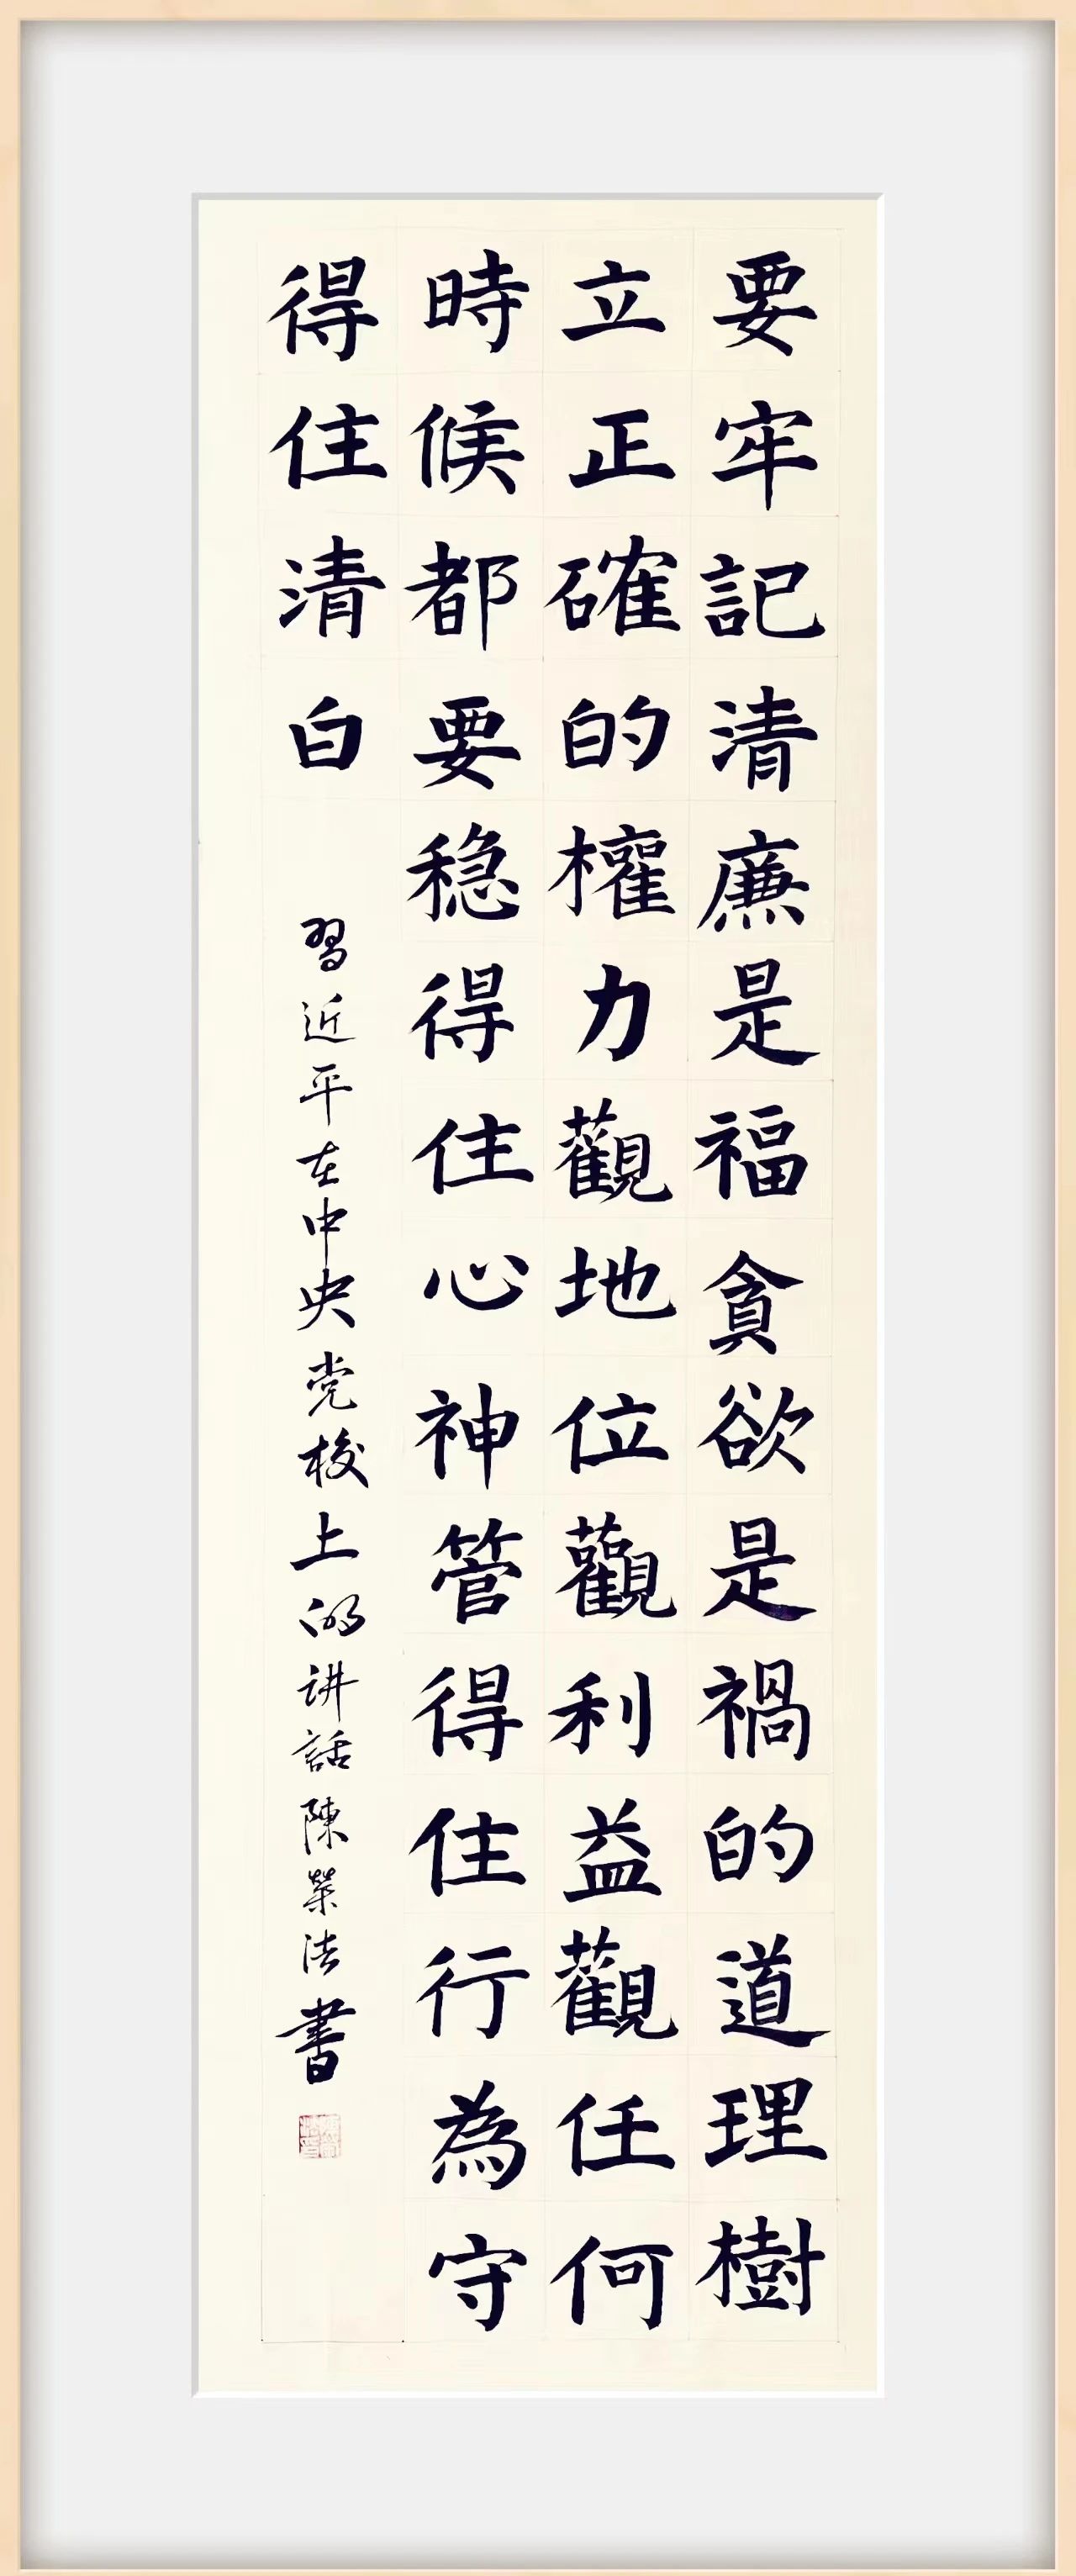 要牢記清廉是福貪欲是禍的道理樹
立正確的權力觀地位觀利益觀任何
時候都要稳得住心神管得住行為守
得住清白
習近平在中央党校上的讲話陳榮法書